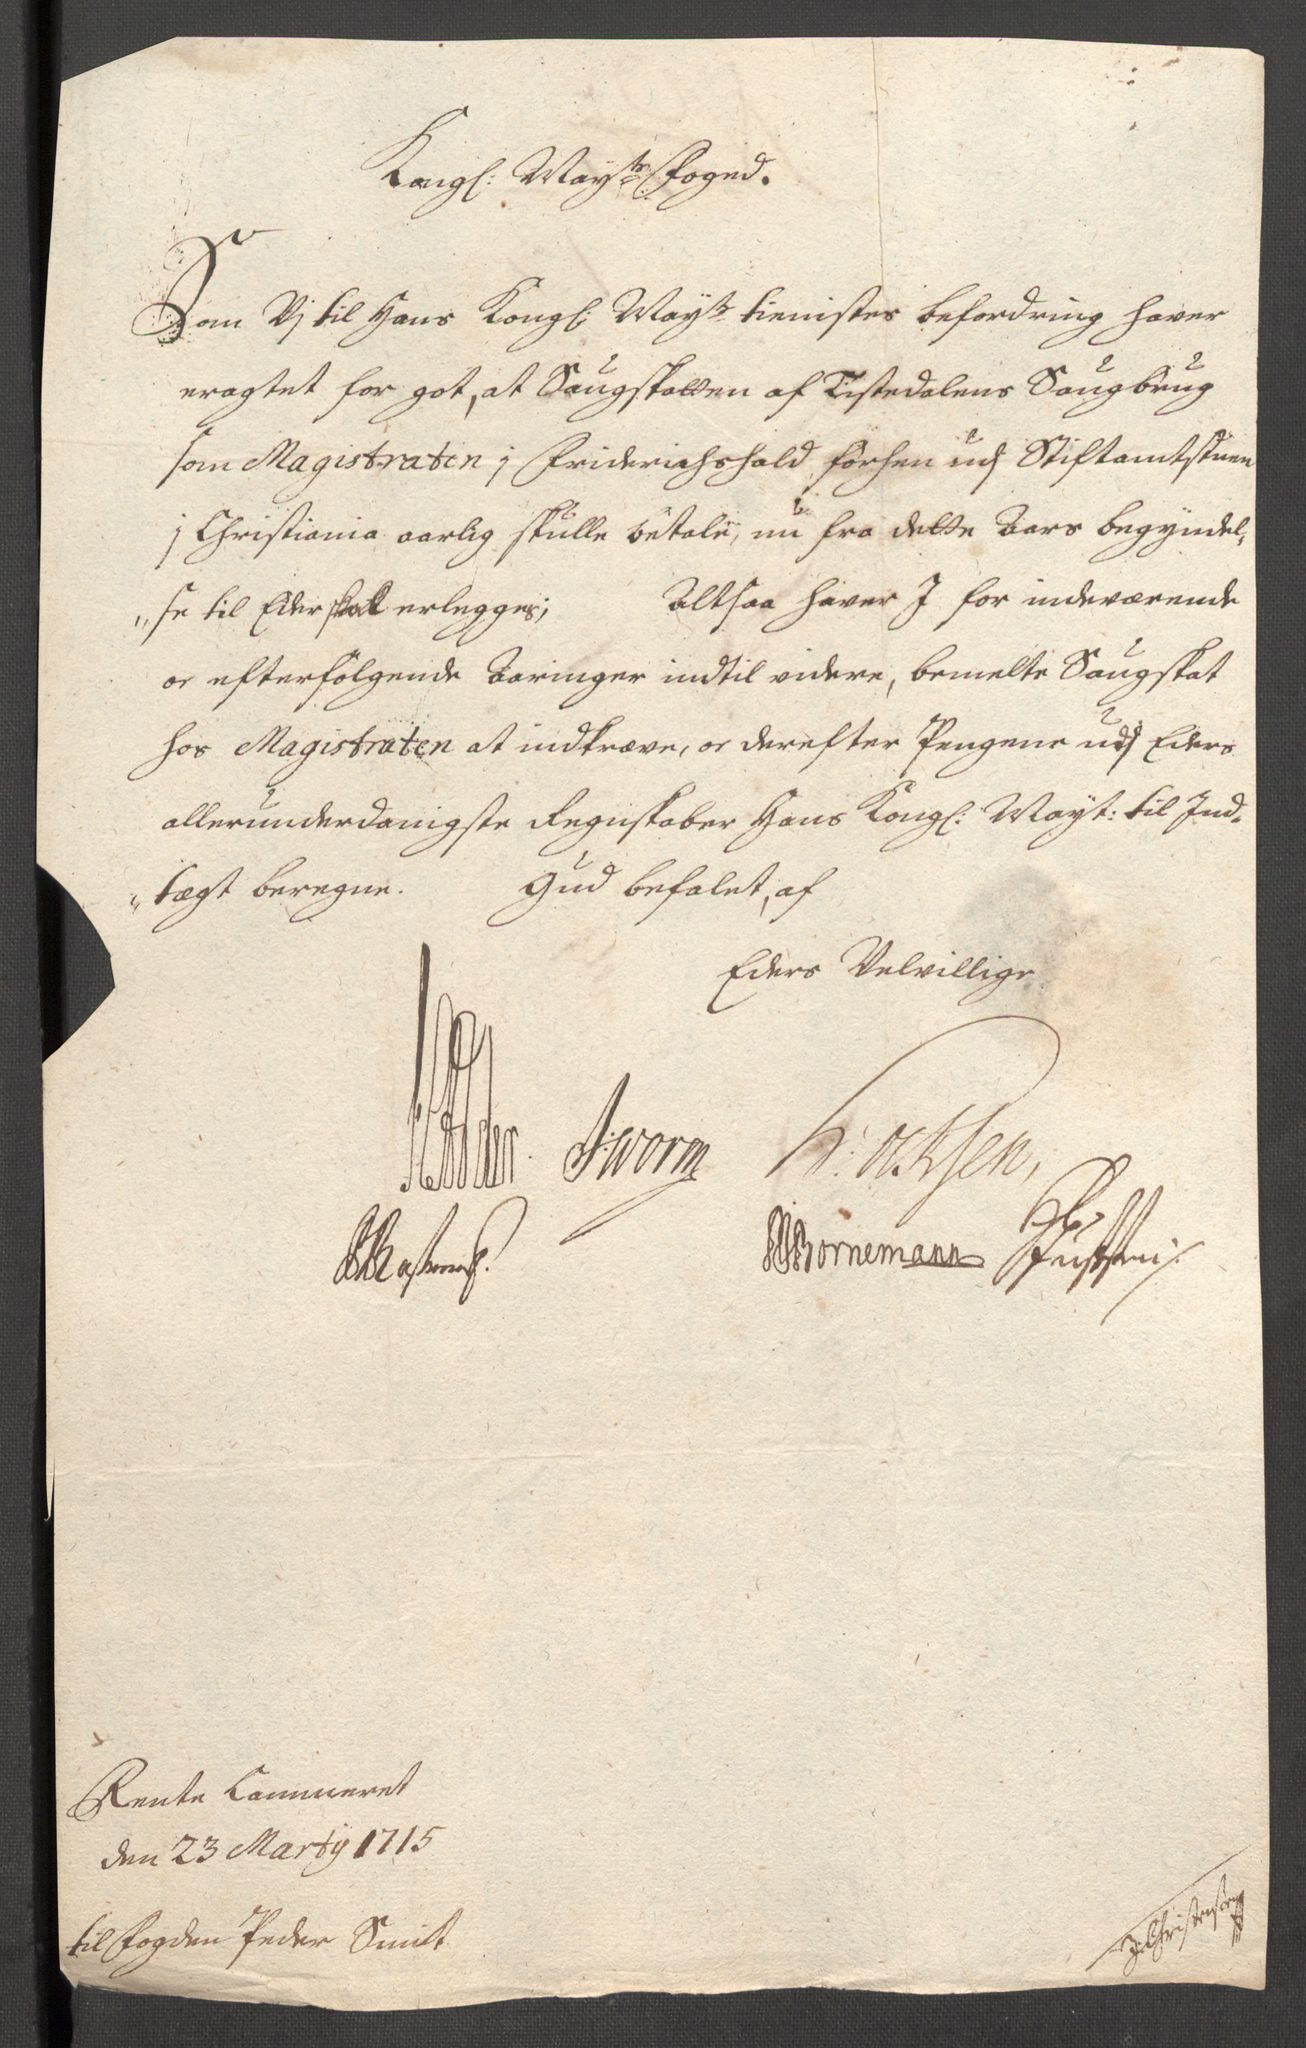 Kongl: Mayts Foged.
Som Vj til Hans Kongl: Mayts tienistes befordring haver
eragtet for got, at Saugskatten af Tistedalens Saugbrug
som Magistraten j Friderichshald forhen udj Stiftamtstuen
j Christiania aarlig skulle betale, nu fra dette Aars begyndel,
"se til Eder skal erlegges; Altsaa haver J for indeværende
oc efterfølgende Aaringer indtil videre, bemelte Saugskat
hos Magistraten at indkræve, oc derefter Pengene udj Eders
allerunderdanigste Regnskaber Hans Kongl: Mayt: til Ind-
"tægt beregne. Gud befalet, af
Eders Velvillige
Worm
Bornemann
Rente Cammeret
den 23 Martij 1715
til Fogden Peder Smit